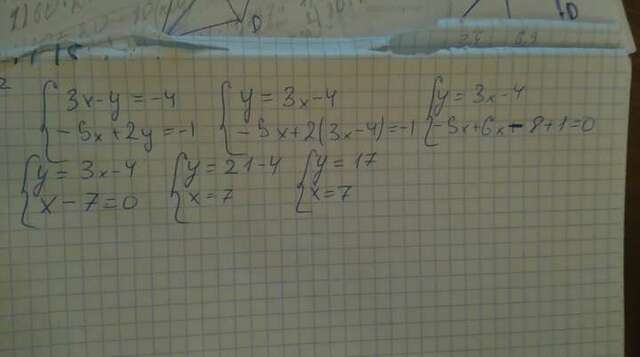 2
{ 3x-y=-4
-5x+2y=-1
{ y=3x-4
-5x+2(3x-4)=-1
{ y=3x-4
-5x+6x-8+1=0
{ y=3x-4
x-7=0
{ y=21-4
x=7
{ y=17
x=7